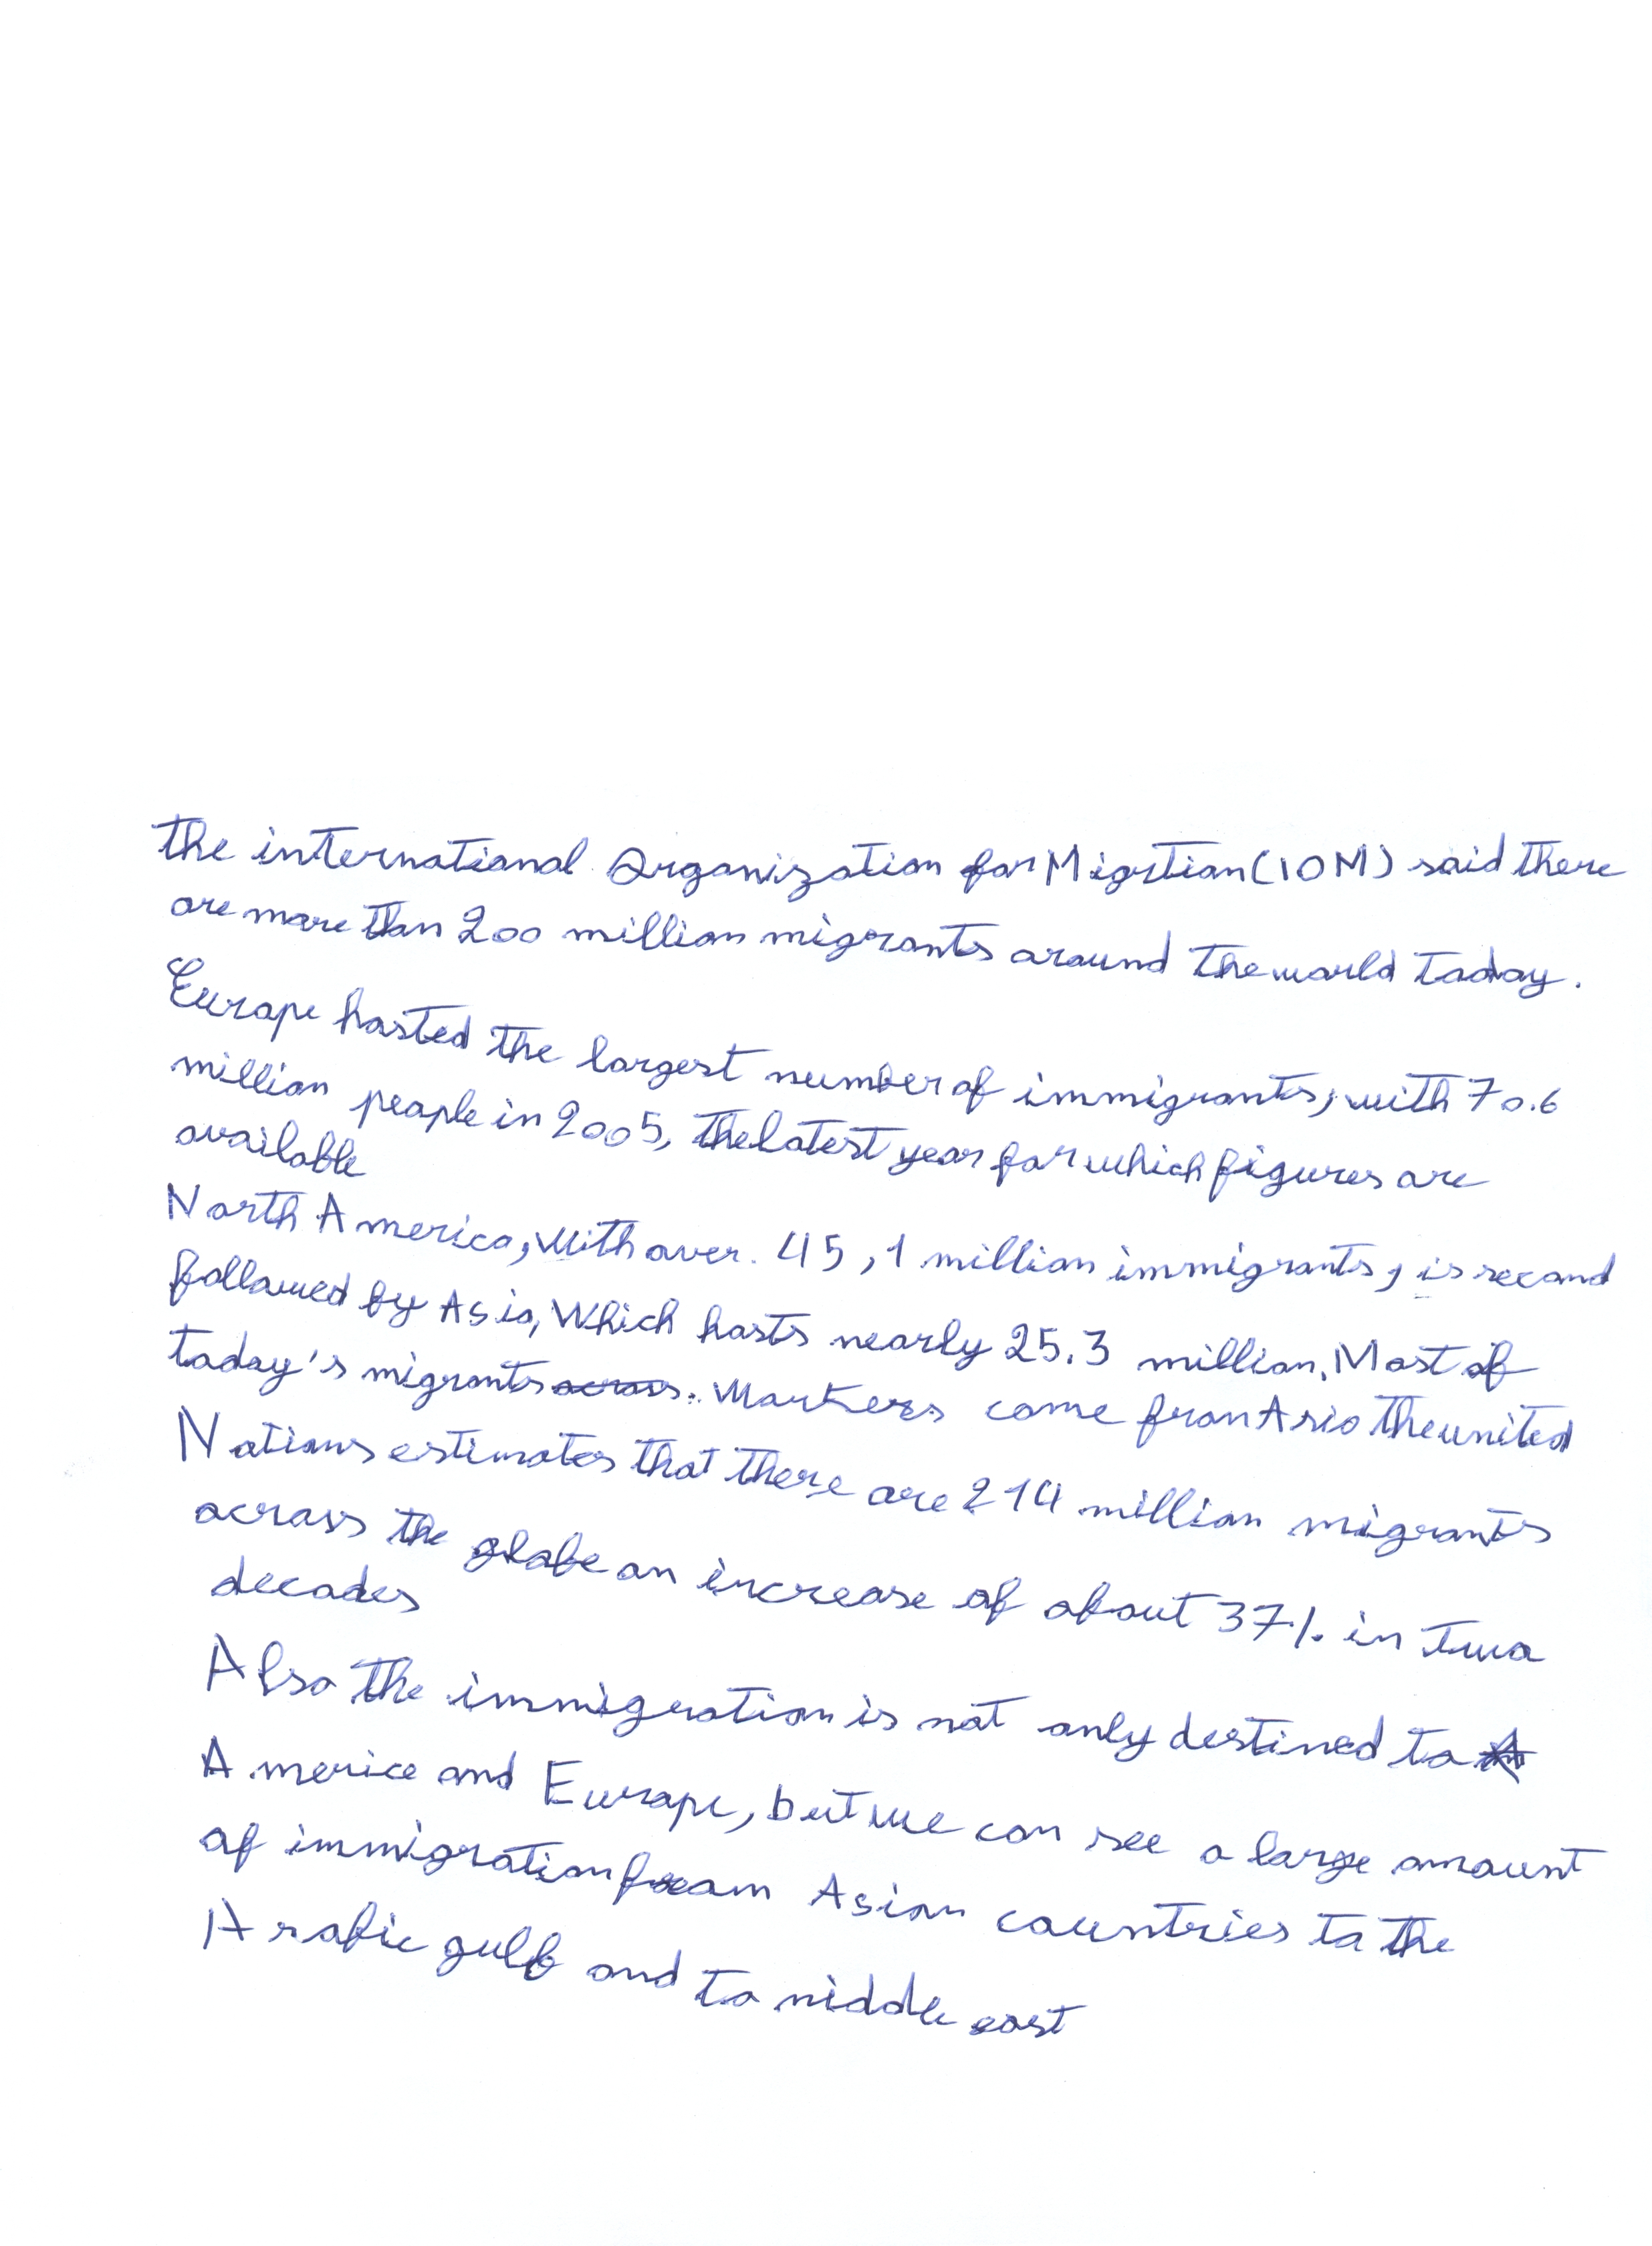 the international Organization for Migrtian (IOM) said there
are more than 200 million migrants around the world today.
Europe hosted the largest number of immigrants, with 70.6
million people in 2005, the latest year for which figures are
available
North America, With over. 45,1 million immigrants, is second
followed by Asia, Which hosts nearly 25.3 million. Most of
today's migrants across. Workers come fron Asia the united
Nations estimates that there are 214 million migrants
across the globe an increase of about 37% in two
decades
Also the immigration is not only destined to
America and Europe, but we can see a large amount
of immigration from Asian countries to the
Arabic gulf and to niddle east